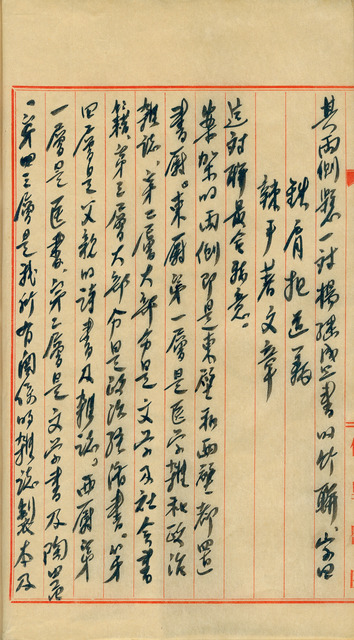 其兩側懸一對楊繼盛書的竹聯
鉄肩担道義
辣手著文章
這対聯最合我意。
案架的兩側即是東壁和西壁都置
書厨。東厨第一層是医学雜和政治
雜誌、第二層大部分是文学及社会書
籍、第三層大部分是政治經济書。第
四層是父親的詩書及雜誌。西厨第
一層是医書、第二層是文学書及陶器
第四三層是我所有関係的雜誌製本及